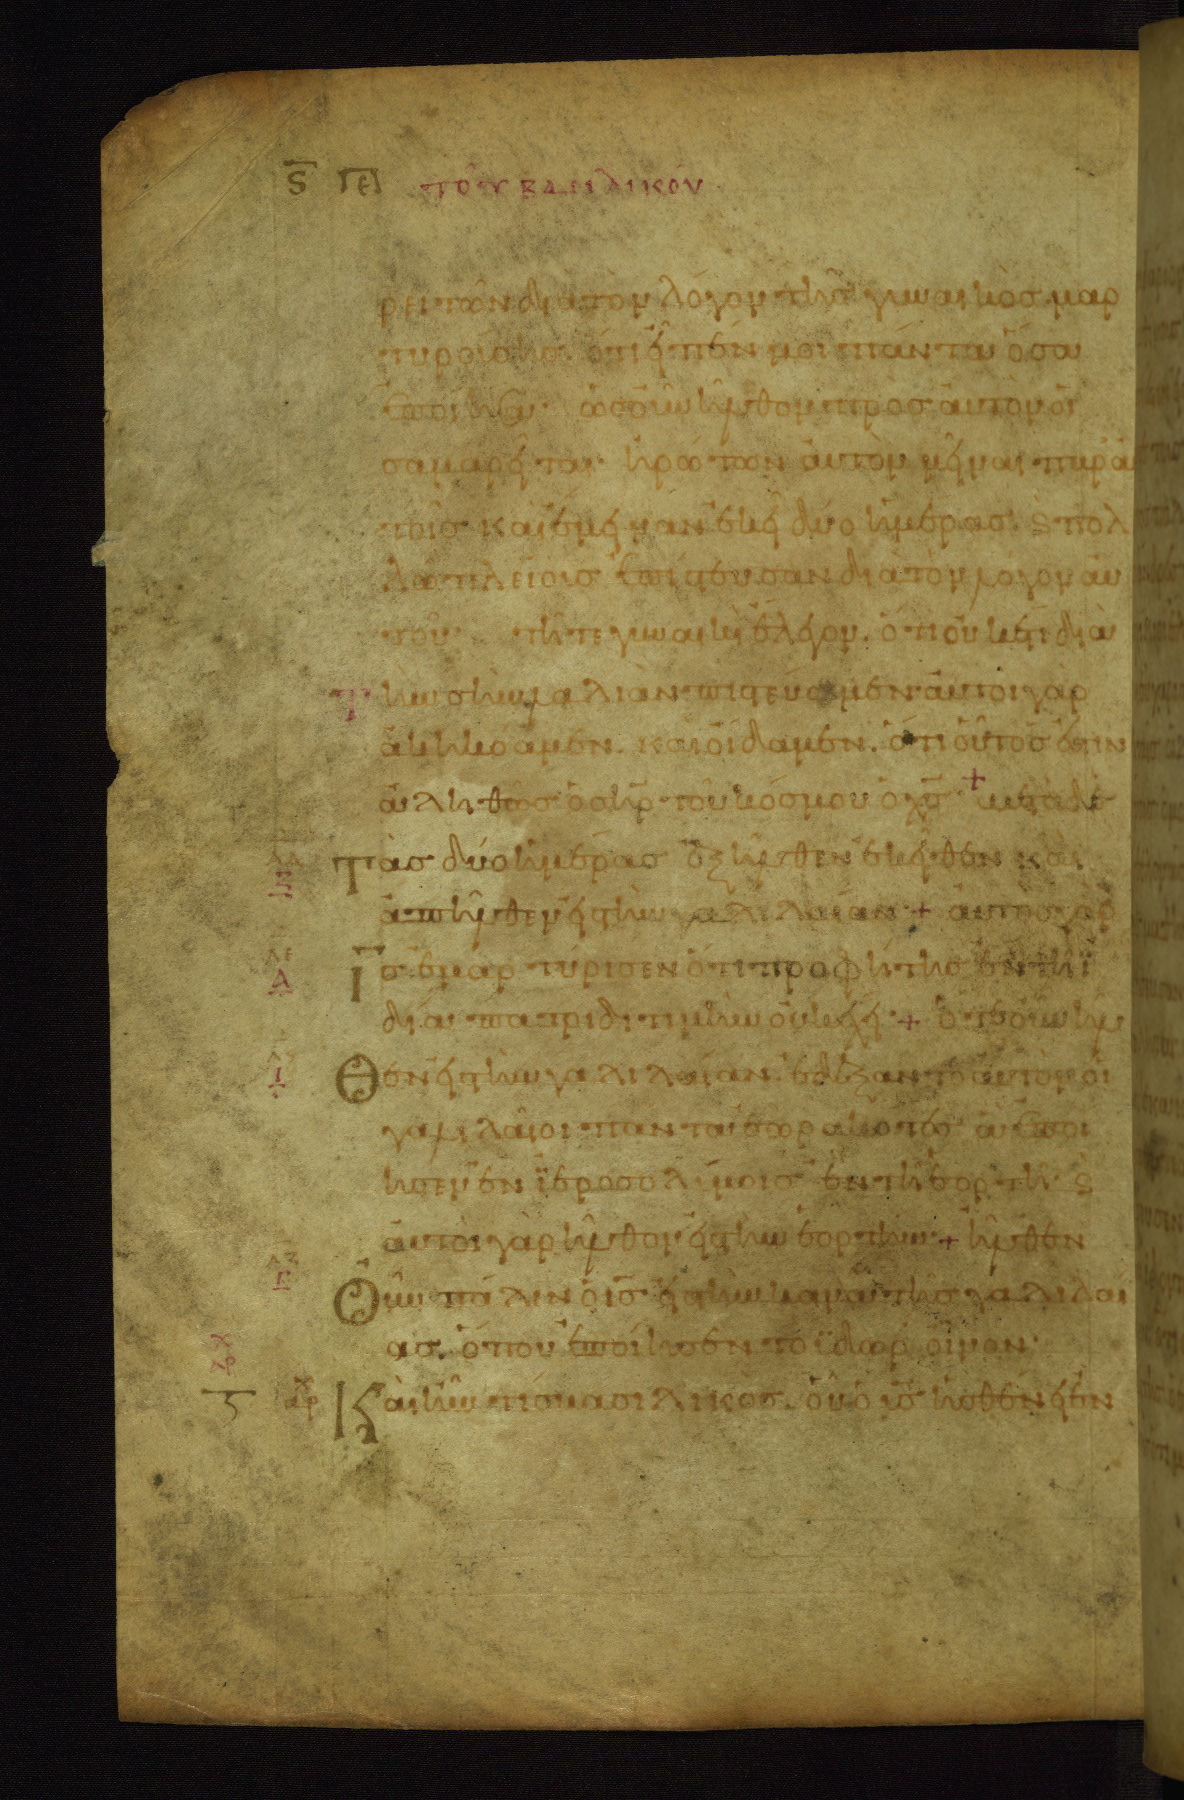 Ϛ ΠΕ τοῦ βασιλικοῦ
ρειτῶν διὰ τὸν λόγον τῆς γυναικὸς μαρ
τυρούσης. ὅτι εἶπέν μοι πάντα ὅσα
ἐποίησα. ὡς οὖν ἦλθον πρὸς αὐτὸν οἱ
σαμαρεῖται ἠρώτων αὐτὸν μεῖναι παρ' αὐ
τοῖς καὶ ἔμεινεν ἐκεῖ δύο ἡμέρας. ϗ πολ
λῷ πλείους ἐπίστευσαν διὰ τὸν λόγον αὐ
τοῦ. τῇ τε γυναικὶ ἔλεγον. ὅτι οὐκέτι διὰ
τὴν σὴν λαλιὰν πιστεύομεν αὐτοὶ γὰρ
ἀκηκόαμεν. καὶ οἴδαμεν. ὅτι οὗτός ἐστιν
ἀληθῶς ὁ σηρ τοῦ κόσμου ὁ χς + μετὰ δὲ
λδ Τὰς δύο ἡμέρας ἐξῆλθεν ἐκεῖθεν καὶ
ἀπῆλθεν εἰς τὴν γαλιλαίαν + αὐτὸς γὰρ
λε Α Ις ἐμαρτύρισεν ὅτι προφήτης ἐν τῇ ϊ
δίᾳ πατρίδι τιμὴν οὐκ ἔχει + ὅτε οὖν ἦλ
Θεν εἰς τὴν γαλιλαίαν. ἐδέξαντο αὐτὸν οἱ
γαλιλαῖοι πάντα ἑωρακότες ἃ ἐποί
ησεν ἐν ϊεροσολύμοις ἐν τῇ ἑορτῇ ϗ
αὐτοὶ γὰρ ἦλθον εἰς τὴν ἑορτήν + ἦλθεν
Οὖν πάλιν ὁ ις εἰς τὴν κανᾶ τῆς γαλιλαί
ας. ὅπου ἐποίησεν τὸ ϋδωρ οἶνον.
Καὶ ἦν τίς βασιλικὸς. οὗ ὁ υἱὸς ἠσθένει ἐν